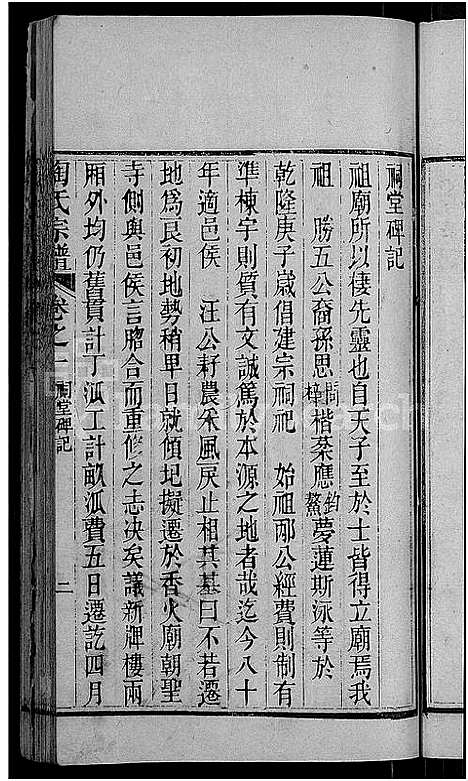 祠堂碑記
祖廟所以棲先靈也自天子至於士皆得立廟焉我
祖　勝五公裔孫思問梓楷棻應鈞鰲夢蓮斯泳等於
乾隆庚子歲倡建宗祠祀　始祖邴公經費則制有
準棟宇則質有文誠篤於本源之地者哉迄今八十
年適邑侯　汪公耔農采風戾止相其基曰不若遷
地爲艮初地勢稍卑日就傾圮擬遷於香火廟朝聖
寺側與邑侯言脗合而重修之志决矣議新牌樓兩
廂外均仍舊貫計丁派工計畝派費五日遷訖四月
陶氏宗譜
卷之
祠堂碑記
二